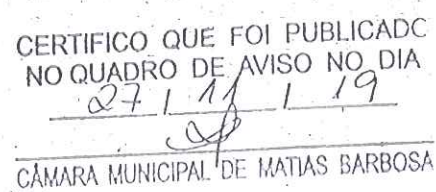 CERTIFICO QUE FOI PUBLICADO
NO QUADRO DE AVISO NO DIA
27 / 11 / 19
CÂMARA MUNICIPAL DE MATIAS BARBOSA